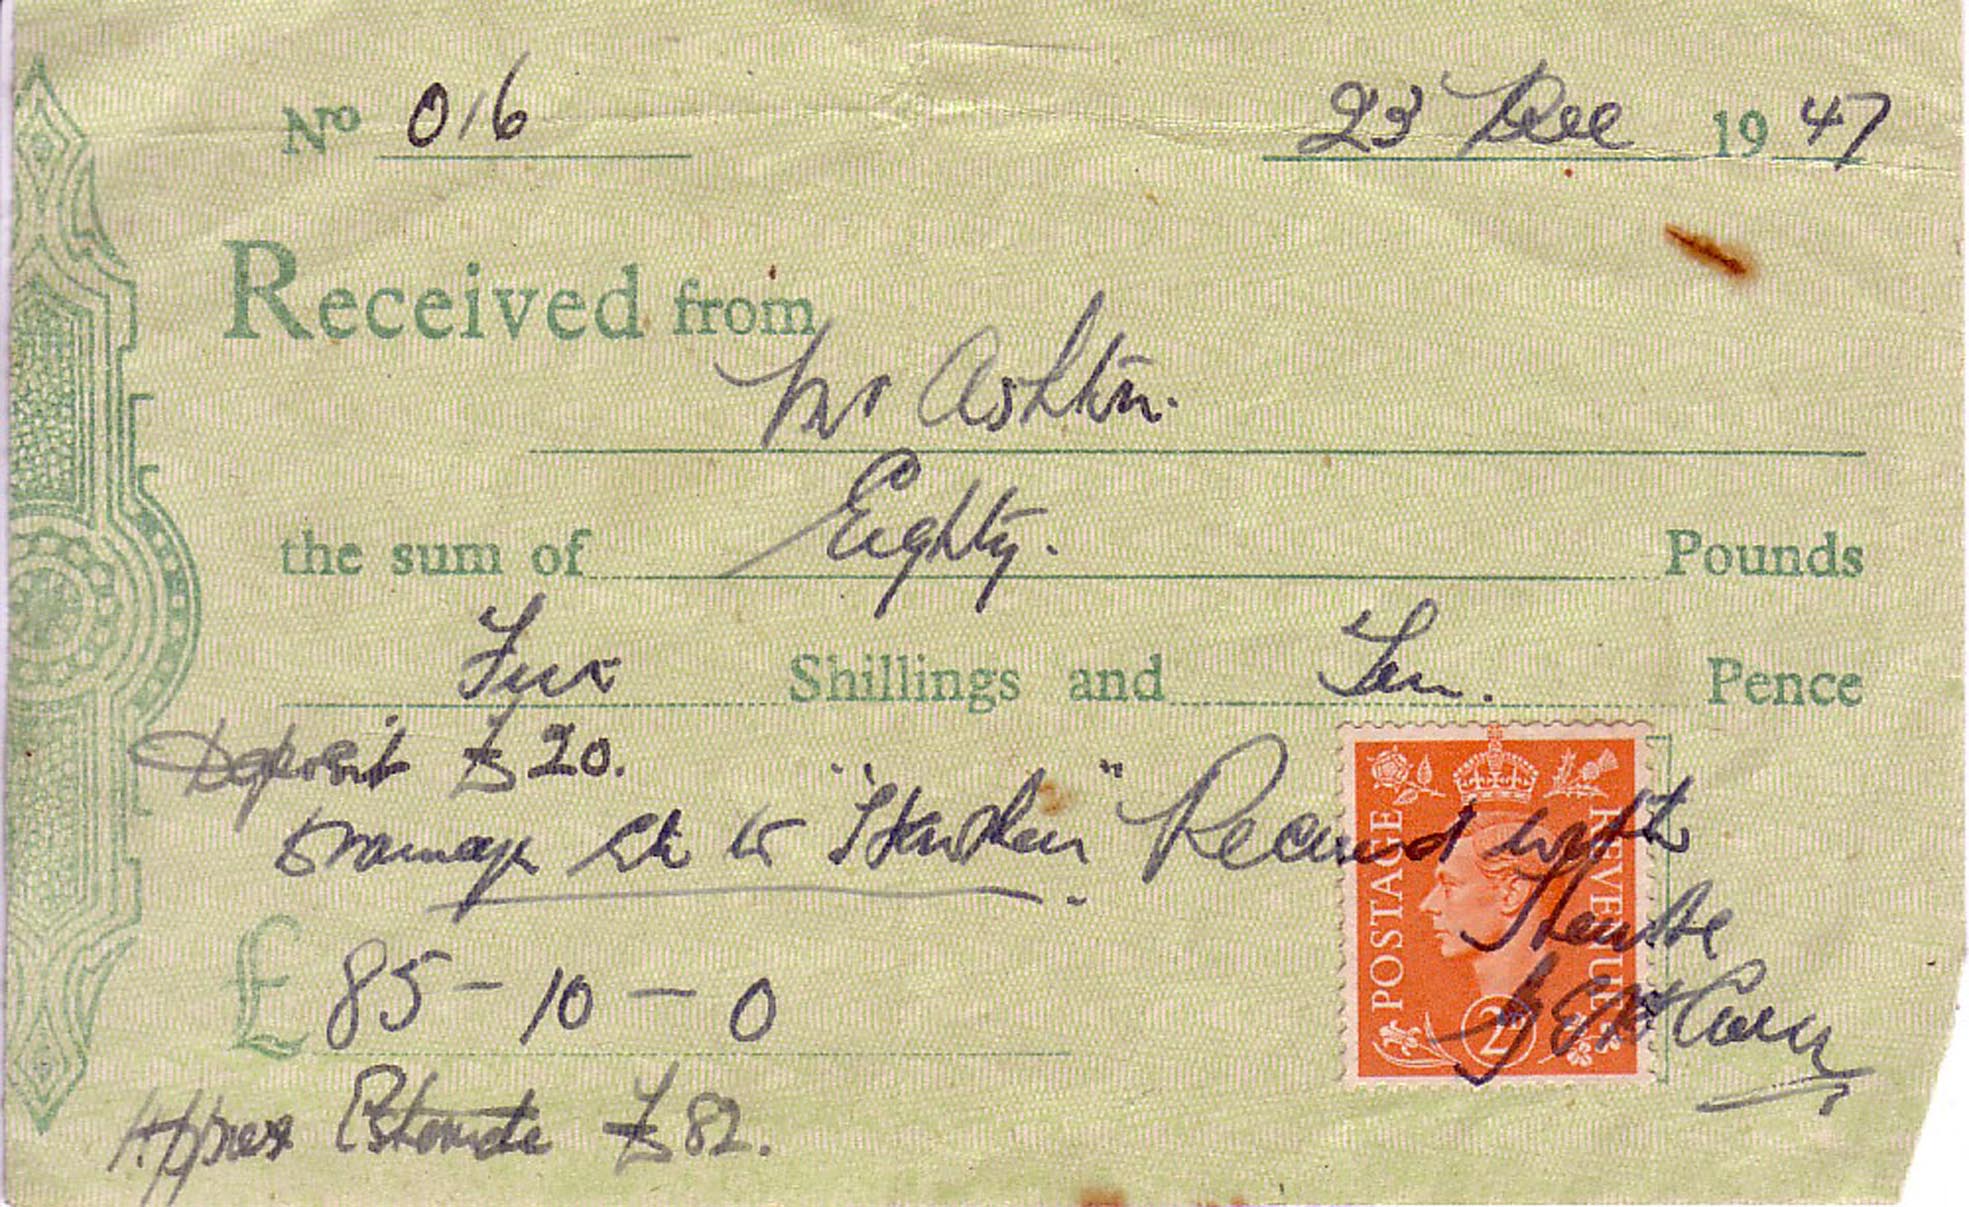 No 016 23 Dec 1947
Received from
Mr Ashton.
the sum of Eighty. Pounds
Five Shillings and Ten. Pence
Deposit £20.
Drainage to "Hawden" Received with
Thanks
£ 85-10-0
Approx Estimate £82.
POSTAGE
REVENUE
2D